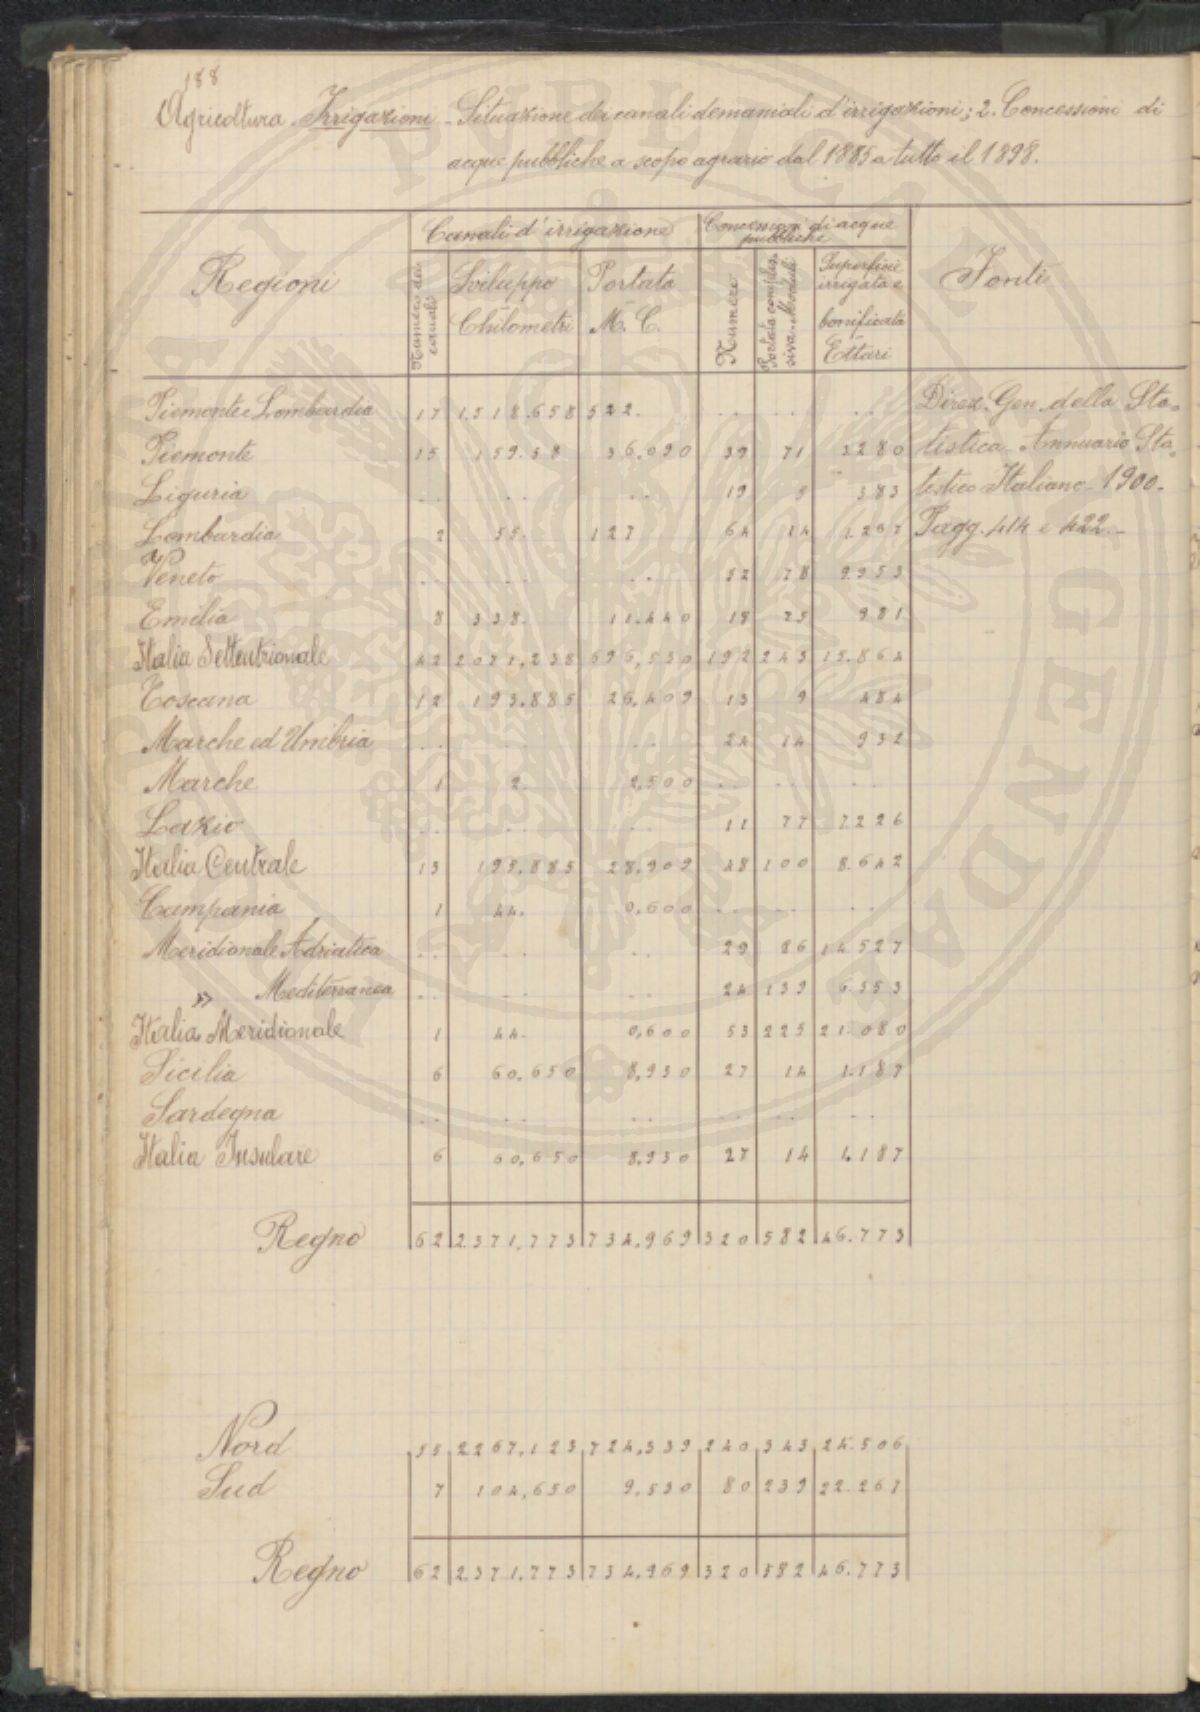 188
Agricoltura. Irrigazioni - Situazione dei canali demaniali d'irrigazioni; 2. Concessioni di
acque pubbliche a scopo agrario dal 1885 a tutto il 1898.
Regioni | Canali d'irrigazione | Concessioni di acque pubbliche | Fonti
Numero dei canali | Sviluppo Chilometri | Portata M. C. | Numero | Portata comples. siva - Moduli | Superficie irrigata e bonificata Ettari
Piemonte e Lombardia 17 1.518.658 522. .. .. .. Direz. Gen. della Sta=
Piemonte 15 159.58 36,090 39 71 3280 tistica - Annuario Sta=
Liguria .. .. .. 19 5 383 tistico Italiano - 1900.
Lombardia 2 55. 127 64 14 1.267 Pagg. 414 e 422.-
Veneto .. .. .. 52 78 9953
Emilia 8 338. 11.440 18 25 981
Italia Settentrionale 42 2071,238 696,530 192 243 15.864
Toscana 12 193.885 26,409 13 9 484
Marche ed Umbria .. .. .. 24 14 932
Marche 1 2. 2,500 .. .. ..
Lazio .. .. .. 11 77 7226
Italia Centrale 13 195,885 28,909 48 100 8.642
Campania 1 44. 0,600 .. .. ..
Meridionale Adriatica .. .. .. 29 86 14527
» Mediterranea .. .. .. 24 139 6.553
Italia Meridionale 1 44. 0,600 53 225 21.080
Sicilia 6 60,650 8,930 27 14 1.187
Sardegna .. .. .. .. .. ..
Italia Insulare 6 60,650 8,930 27 14 1.187
Regno 62 2371,773 734,969 320 582 46.773
Nord 55 2267,123 724,339 240 343 24.506
Sud 7 104,650 9,530 80 239 22.267
Regno 62 2.371,773 734,969 320 582 46.773